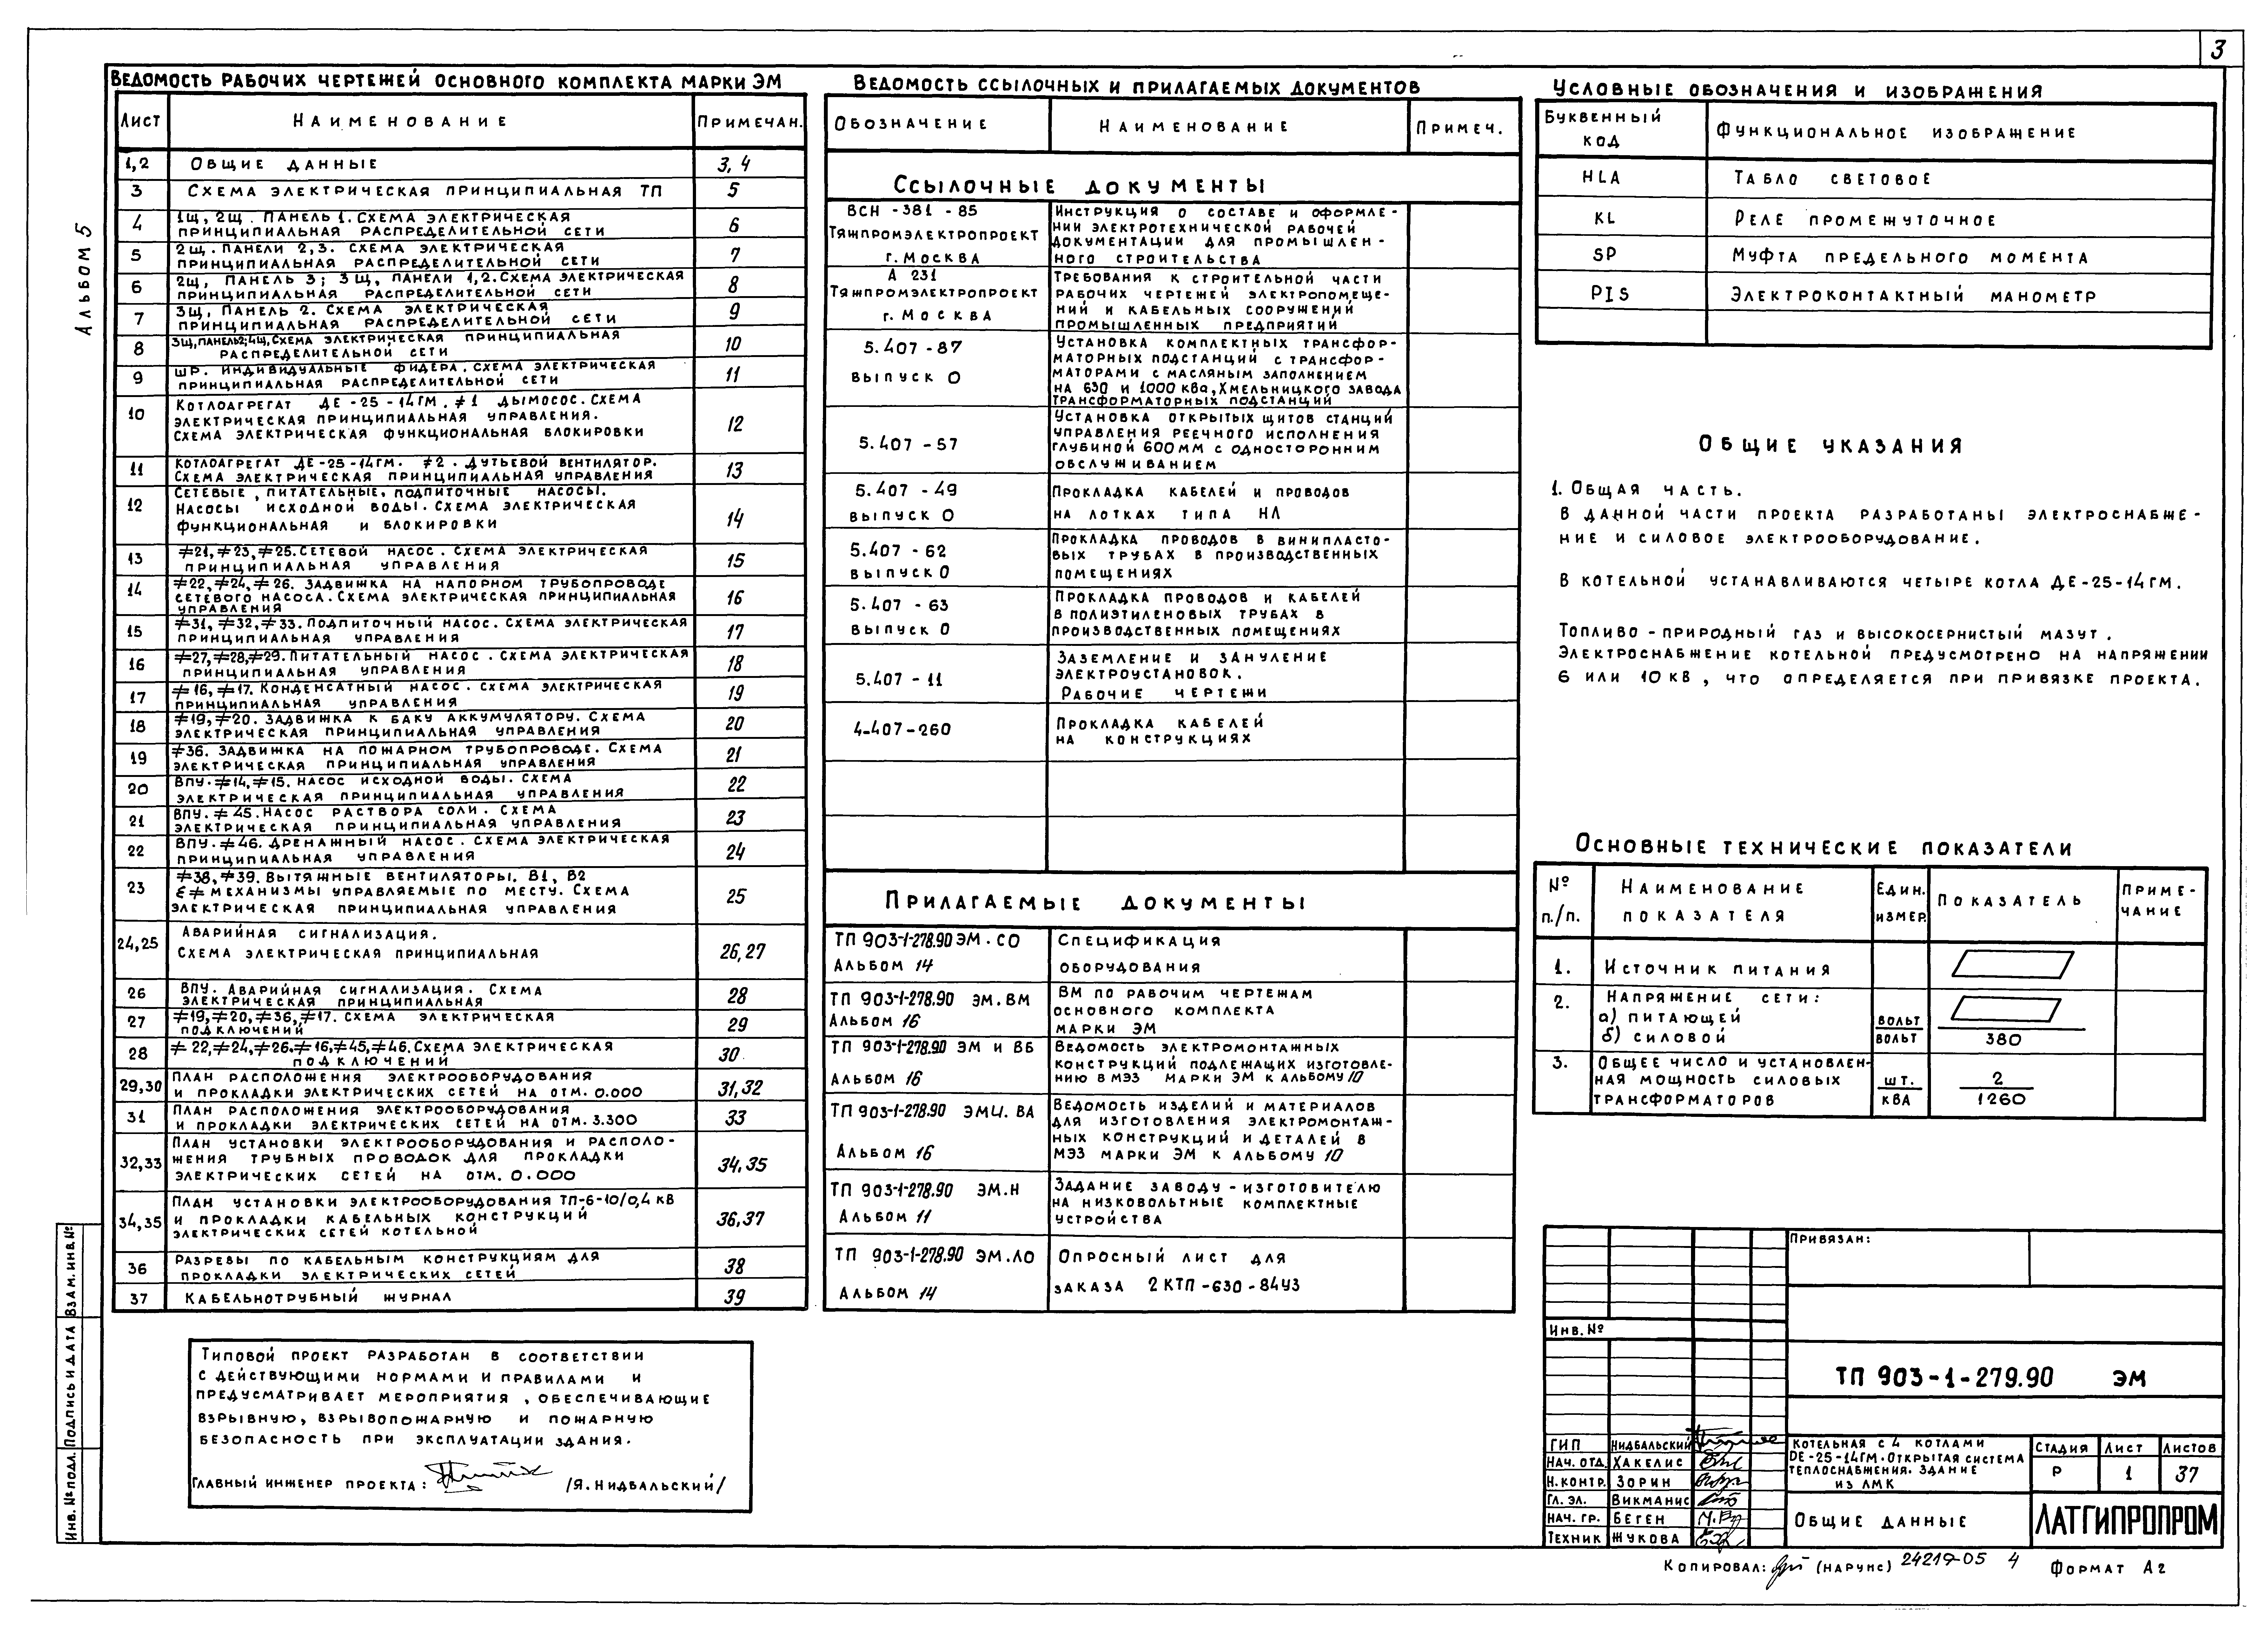 3
Альбом 5
Ведомость рабочих чертежей основного комплекта марки ЭМ
Лист Наименование Примечан.
1,2 Общие данные 3,4
3 Схема электрическая принципиальная ТП 5
4 1щ, 2щ. Панель 1. Схема электрическая 6
принципиальная распределительной сети
5 2щ. Панели 2,3. Схема электрическая 7
принципиальная распределительной сети
6 2щ, панель 3; 3щ, панели 1,2. Схема электрическая 8
принципиальная распределительной сети
7 3щ, панель 2. Схема электрическая 9
принципиальная распределительной сети
8 3щ, панель2; 4щ, Схема электрическая принципиальная 10
распределительной сети
9 ШР. Индивидуальные фидера. Схема электрическая 11
принципиальная распределительной сети
10 Котлоагрегат ДЕ-25-14ГМ. ≠1 дымосос. Схема 12
электрическая принципиальная управления.
Схема электрическая функциональная блокировки
11 Котлоагрегат ДЕ-25-14ГМ. ≠2. Дутьевой вентилятор. 13
Схема электрическая принципиальная управления
12 Сетевые, питательные, подпиточные насосы. 14
Насосы исходной воды. Схема электрическая
функциональная и блокировки
13 ≠21, ≠23, ≠25. Сетевой насос. Схема электрическая 15
принципиальная управления
14 ≠22, ≠24, ≠26. Задвижка на напорном трубопроводе 16
сетевого насоса. Схема электрическая принципиальная
управления
15 ≠31, ≠32, ≠33. Подпиточный насос. Схема электрическая 17
принципиальная управления
16 ≠27, ≠28, ≠29. Питательный насос. Схема электрическая 18
принципиальная управления
17 ≠16, ≠17. Конденсатный насос. Схема электрическая 19
принципиальная управления
18 ≠19, ≠20. Задвижка к баку аккумулятору. Схема 20
электрическая принципиальная управления
19 ≠36. Задвижка на пожарном трубопроводе. Схема 21
электрическая принципиальная управления
20 ВПУ. ≠14, ≠15. Насос исходной воды. Схема 22
электрическая принципиальная управления
21 ВПУ. ≠45. Насос раствора соли. Схема 23
электрическая принципиальная управления
22 ВПУ. ≠46. Дренажный насос. Схема электрическая 24
принципиальная управления
23 ≠38, ≠39. Вытяжные вентиляторы. В1, В2 25
ε≠ механизмы управляемые по месту. Схема
электрическая принципиальная управления
24,25 Аварийная сигнализация. 26,27
Схема электрическая принципиальная
26 ВПУ. Аварийная сигнализация. Схема 28
электрическая принципиальная
27 ≠19, ≠20, ≠36, ≠17. Схема электрическая 29
подключений
28 ≠22, ≠24, ≠26, ≠16, ≠45, ≠46. Схема электрическая 30
подключений
29,30 План расположения электрооборудования 31,32
и прокладки электрических сетей на отм. 0.000
31 План расположения электрооборудования 33
и прокладки электрических сетей на отм. 3.300
32,33 План установки электрооборудования и располо- 34,35
жения трубных проводок для прокладки
электрических сетей на отм. 0.000
34,35 План установки электрооборудования ТП-6-10/0,4 кВ 36,37
и прокладки кабельных конструкций
электрических сетей котельной
36 Разревы по кабельным конструкциям для 38
прокладки электрических сетей
37 Кабельнотрубный журнал 39
Типовой проект разработан в соответствии
с действующими нормами и правилами и
предусматривает мероприятия, обеспечивающие
взрывную, взрывопожарную и пожарную
безопасность при эксплуатации здания.
Главный инженер проекта: /Я.Нидбальский/
Ведомость ссылочных и прилагаемых документов
Обозначение Наименование Примеч.
Ссылочные документы
ВСН-381-85 Инструкция о составе и оформле-
Тяжпромэлектропроект нии электротехнической рабочей
документации для промышлен-
г. Москва ного строительства
А 231 Требования к строительной части
Тяжпромэлектропроект рабочих чертежей электропомеще-
г. Москва ний и кабельных сооружений
промышленных предприятий
5.407-87 Установка комплектных трансфор-
маторных подстанций с трансфор-
выпуск 0 маторами с масляным заполнением
на 630 и 1000 кВа, Хмельницкого завода
трансформаторных подстанций
Установка открытых щитов станций
управления реечного исполнения
5.407-57 глубиной 600мм с односторонним
обслуживанием
5.407-49 Прокладка кабелей и проводов
выпуск 0 на лотках типа НЛ
5.407-62 Прокладка проводов в винипласто-
вых трубах в производственных
выпуск 0 помещениях
5.407-63 Прокладка проводов и кабелей
в полиэтиленовых трубах в
выпуск 0 производственных помещениях
Заземление и зануление
5.407-11 электроустановок.
Рабочие чертежи
4-407-260 Прокладка кабелей
на конструкциях
Прилагаемые документы
ТП 903-1-278.90 ЭМ.СО Спецификация
Альбом 14 оборудования
ТП 903-1-278.90 ЭМ.ВМ ВМ по рабочим чертежам
Альбом 16 основного комплекта
марки ЭМ
ТП 903-1-278.90 ЭМ и ВБ Ведомость электромонтажных
конструкций подлежащих изготовле-
Альбом 16 нию в МЭЗ марки ЭМ к альбому 10
ТП 903-1-278.90 ЭМИ.ВА Ведомость изделий и материалов
для изготовления электромонтаж-
ных конструкций и деталей в
Альбом 16 МЭЗ марки ЭМ к альбому 10
ТП 903-1-278.90 ЭМ.Н Задание заводу-изготовителю
на низковольтные комплектные
Альбом 11 устройства
ТП 903-1-278.90 ЭМ.ЛО Опросный лист для
Альбом 14 заказа 2КТП-630-84У3
Условные обозначения и изображения
Буквенный код Функциональное изображение
HLA Табло световое
KL Реле промежуточное
SP Муфта предельного момента
PIS Электроконтактный манометр
Общие указания
1. Общая часть.
В данной части проекта разработаны электроснабже-
ние и силовое электрооборудование.
В котельной устанавливаются четыре котла ДЕ-25-14ГМ.
Топливо - природный газ и высокосернистый мазут.
Электроснабжение котельной предусмотрено на напряжении
6 или 10кВ, что определяется при привязке проекта.
Основные технические показатели
№ п./п. Наименование показателя Един. измер. Показатель Приме-чание
1. Источник питания
2. Напряжение сети:
а) питающей вольт
б) силовой вольт 380
3. Общее число и установлен-
ная мощность силовых шт. 2
трансформаторов кВА 1260
Привязан:
Инв. №
ТП 903-1-279.90 ЭМ
ГИП Нидбальский
Нач. отд. Хакелис
Н.контр. Зорин
Гл. эл. Викманис
Нач. гр. Беген
Техник Жукова
Котельная с 4 котлами
DE-25-14ГМ. Открытая система
теплоснабжения. Здание
из ЛМК
Стадия Лист Листов
Р 1 37
Общие данные
ЛАТГИПРОПРОМ
Копировал: (Нарунс) 24219-05 4 Формат А2
Инв. № подл. Подпись и дата Взам. инв. №